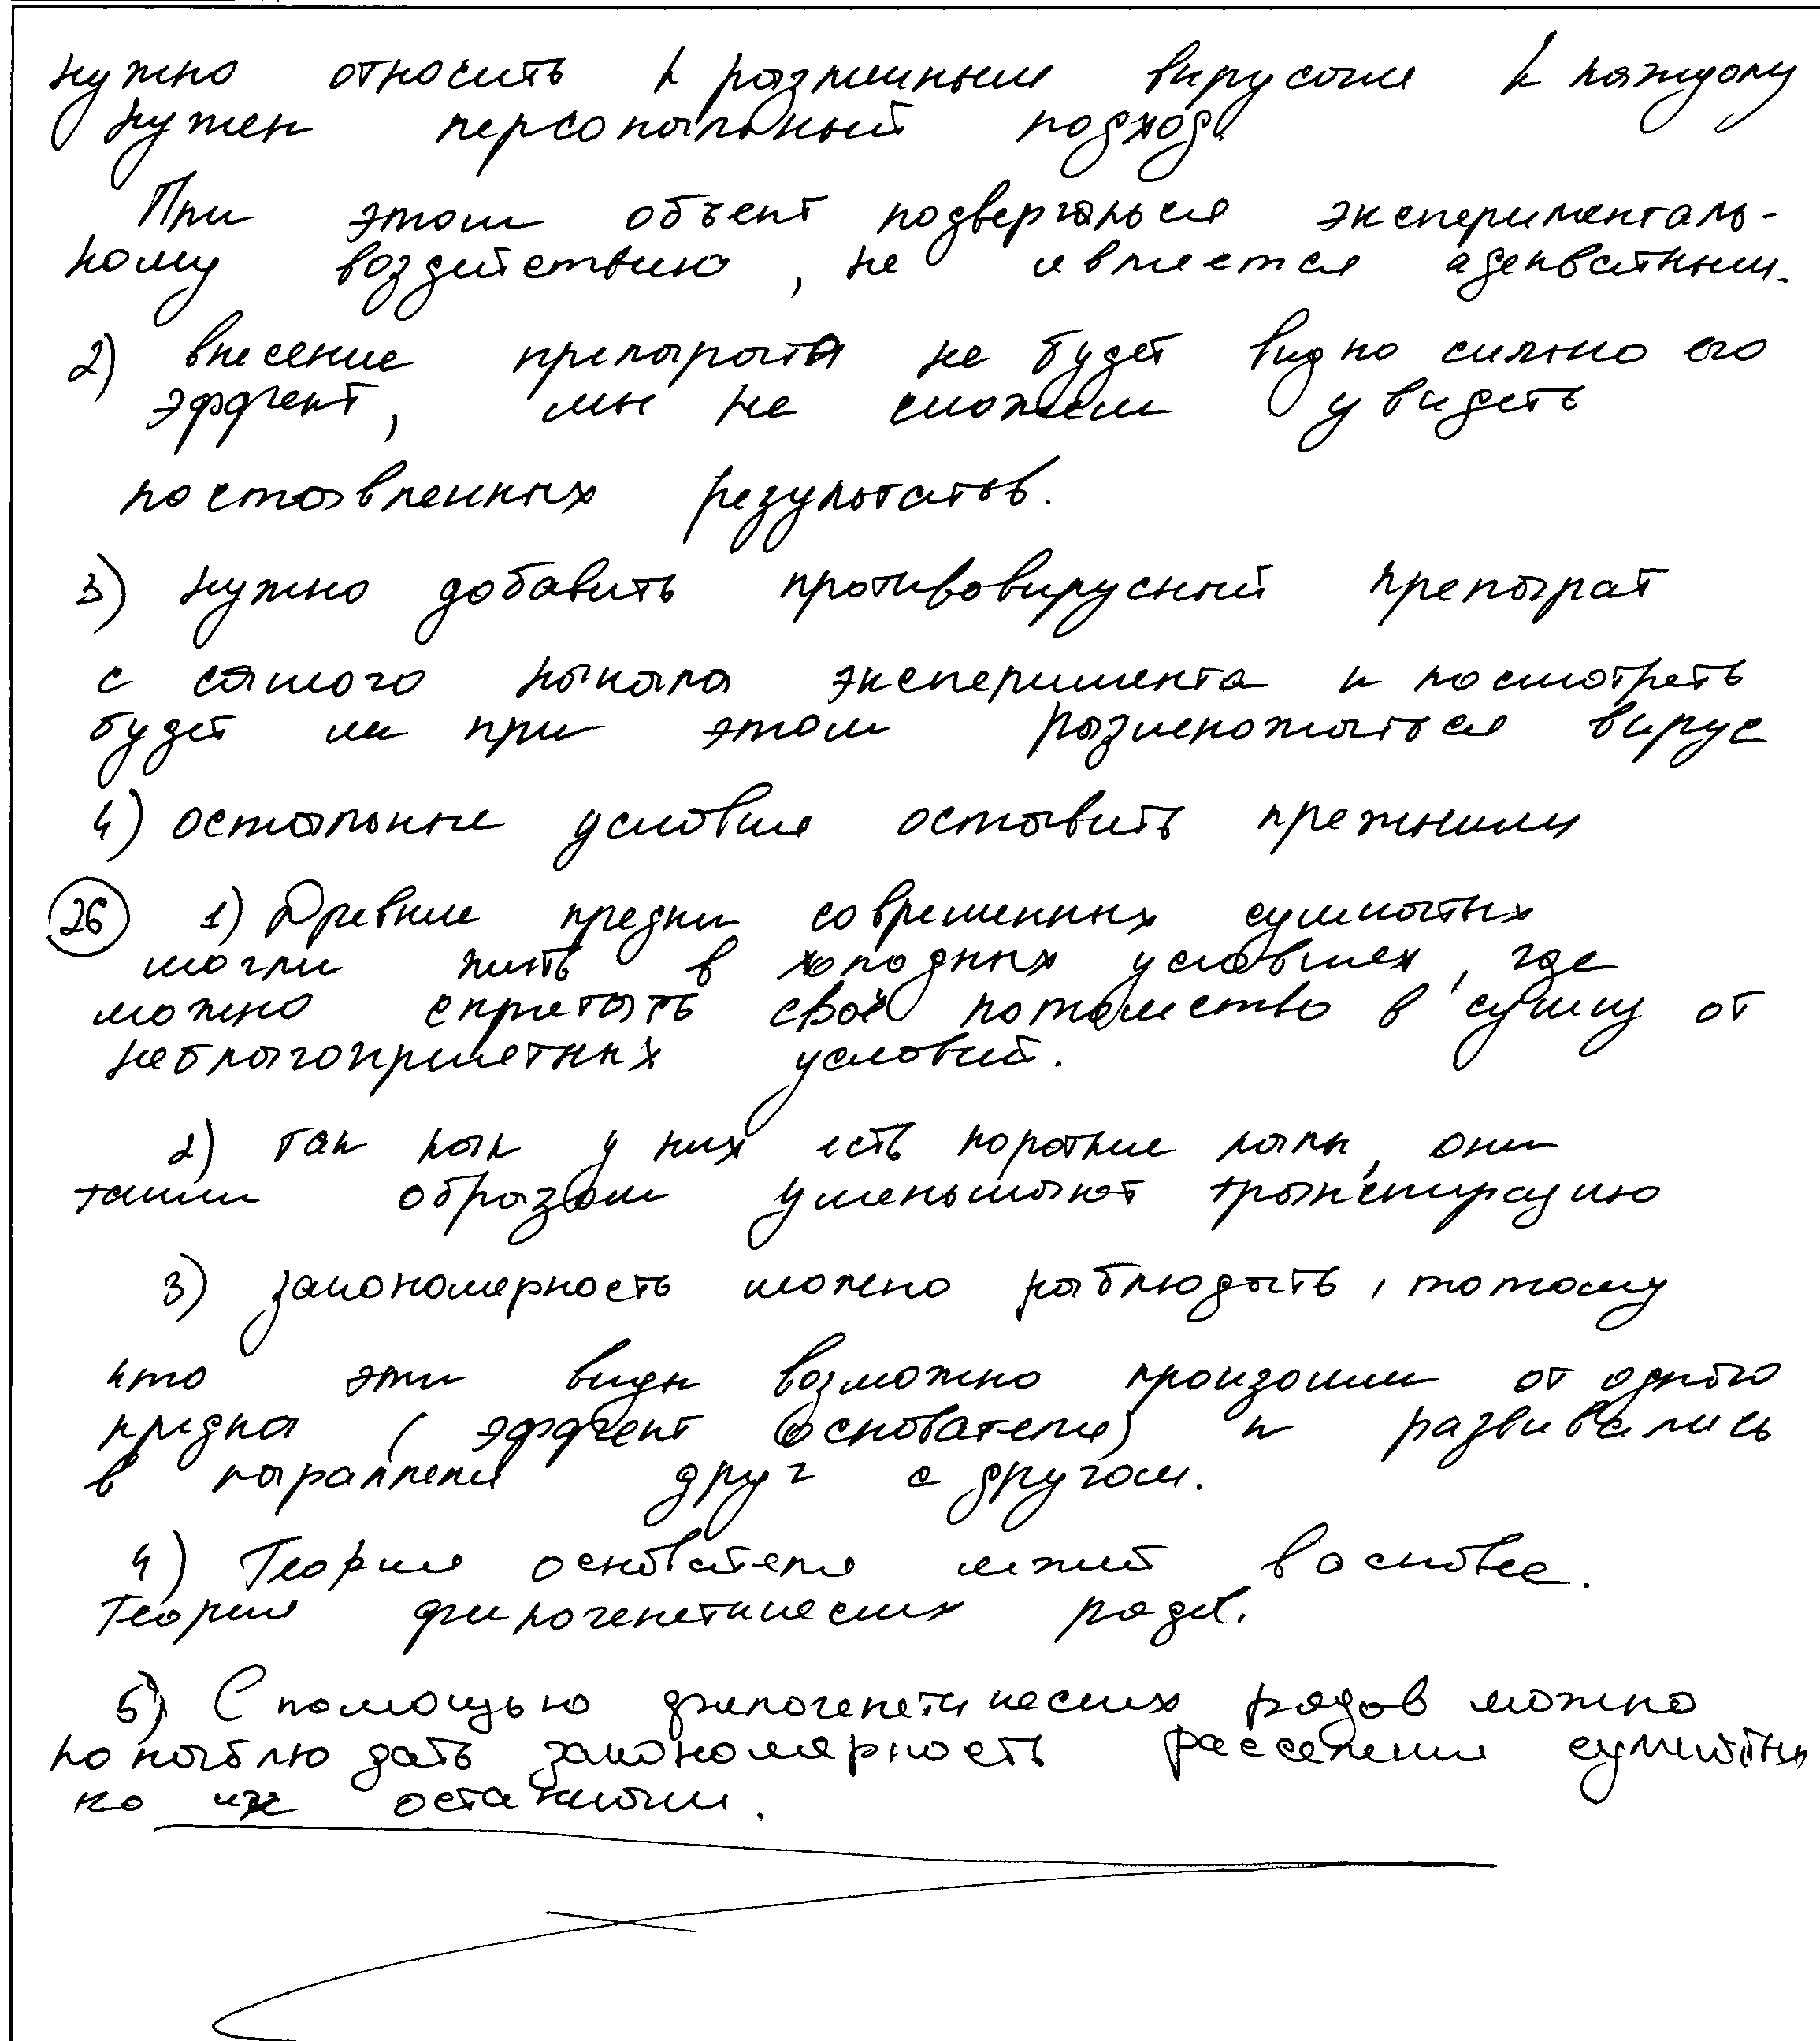 нужно относить к различным вирусам к каждому
нужен персональный подход.
При этом объект подвергаться эксперименталь-
ному воздействию, не является адекватным.
2) внесение препарата не будет видно сильно его
эффект, мы не сможем увидеть
поставленных результатов.
3) нужно добавить противовирусный препарат
с самого начала эксперимента и посмотреть
будет ли при этом размножаться вирус
4) остальные условия оставить прежними
26 1) Древние предки современных сумчатых
могли жить в холодных условиях, где
можно спрятать своё потомство в сумку от
неблагоприятных условий.
2) так как у них есть короткие лапы, они
таким образом уменьшают транспирацию
3) закономерность можно наблюдать, потому
что эти виды возможно произошли от одного
предка (эффект основателя) и развивались
в параллели друг с другом.
4) Теория основателя лежит в основе.
Теория филогенетических рядов.
5) С помощью филогенетических рядов можно
понаблюдать закономерность расселения сумчатых
по их останкам.